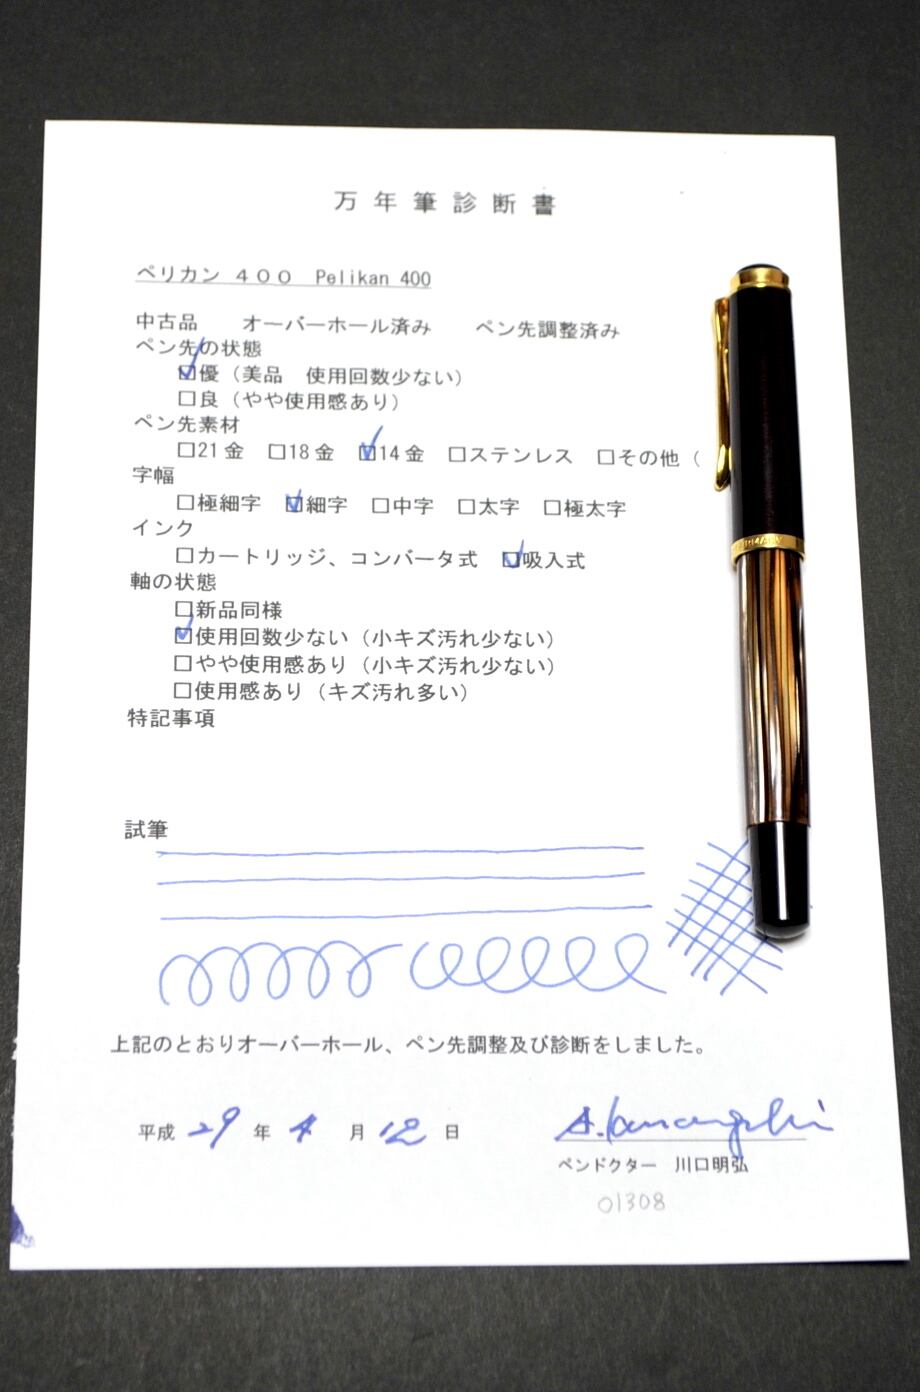 万年筆診断書
ペリカン ４００ Pelikan 400
中古品 オーバーホール済み ペン先調整済み
ペン先の状態
☑優（美品 使用回数少ない）
□良（やや使用感あり）
ペン先素材
□21金 □18金 ☑14金 □ステンレス □その他（
字幅
□極細字 ☑細字 □中字 □太字 □極太字
インク
□カートリッジ、コンバータ式 ☑吸入式
軸の状態
□新品同様
☑使用回数少ない（小キズ汚れ少ない）
□やや使用感あり（小キズ汚れ少ない）
□使用感あり（キズ汚れ多い）
特記事項
試筆
上記のとおりオーバーホール、ペン先調整及び診断をしました。
平成 29 年 4 月 12 日
ペンドクター 川口明弘
01308